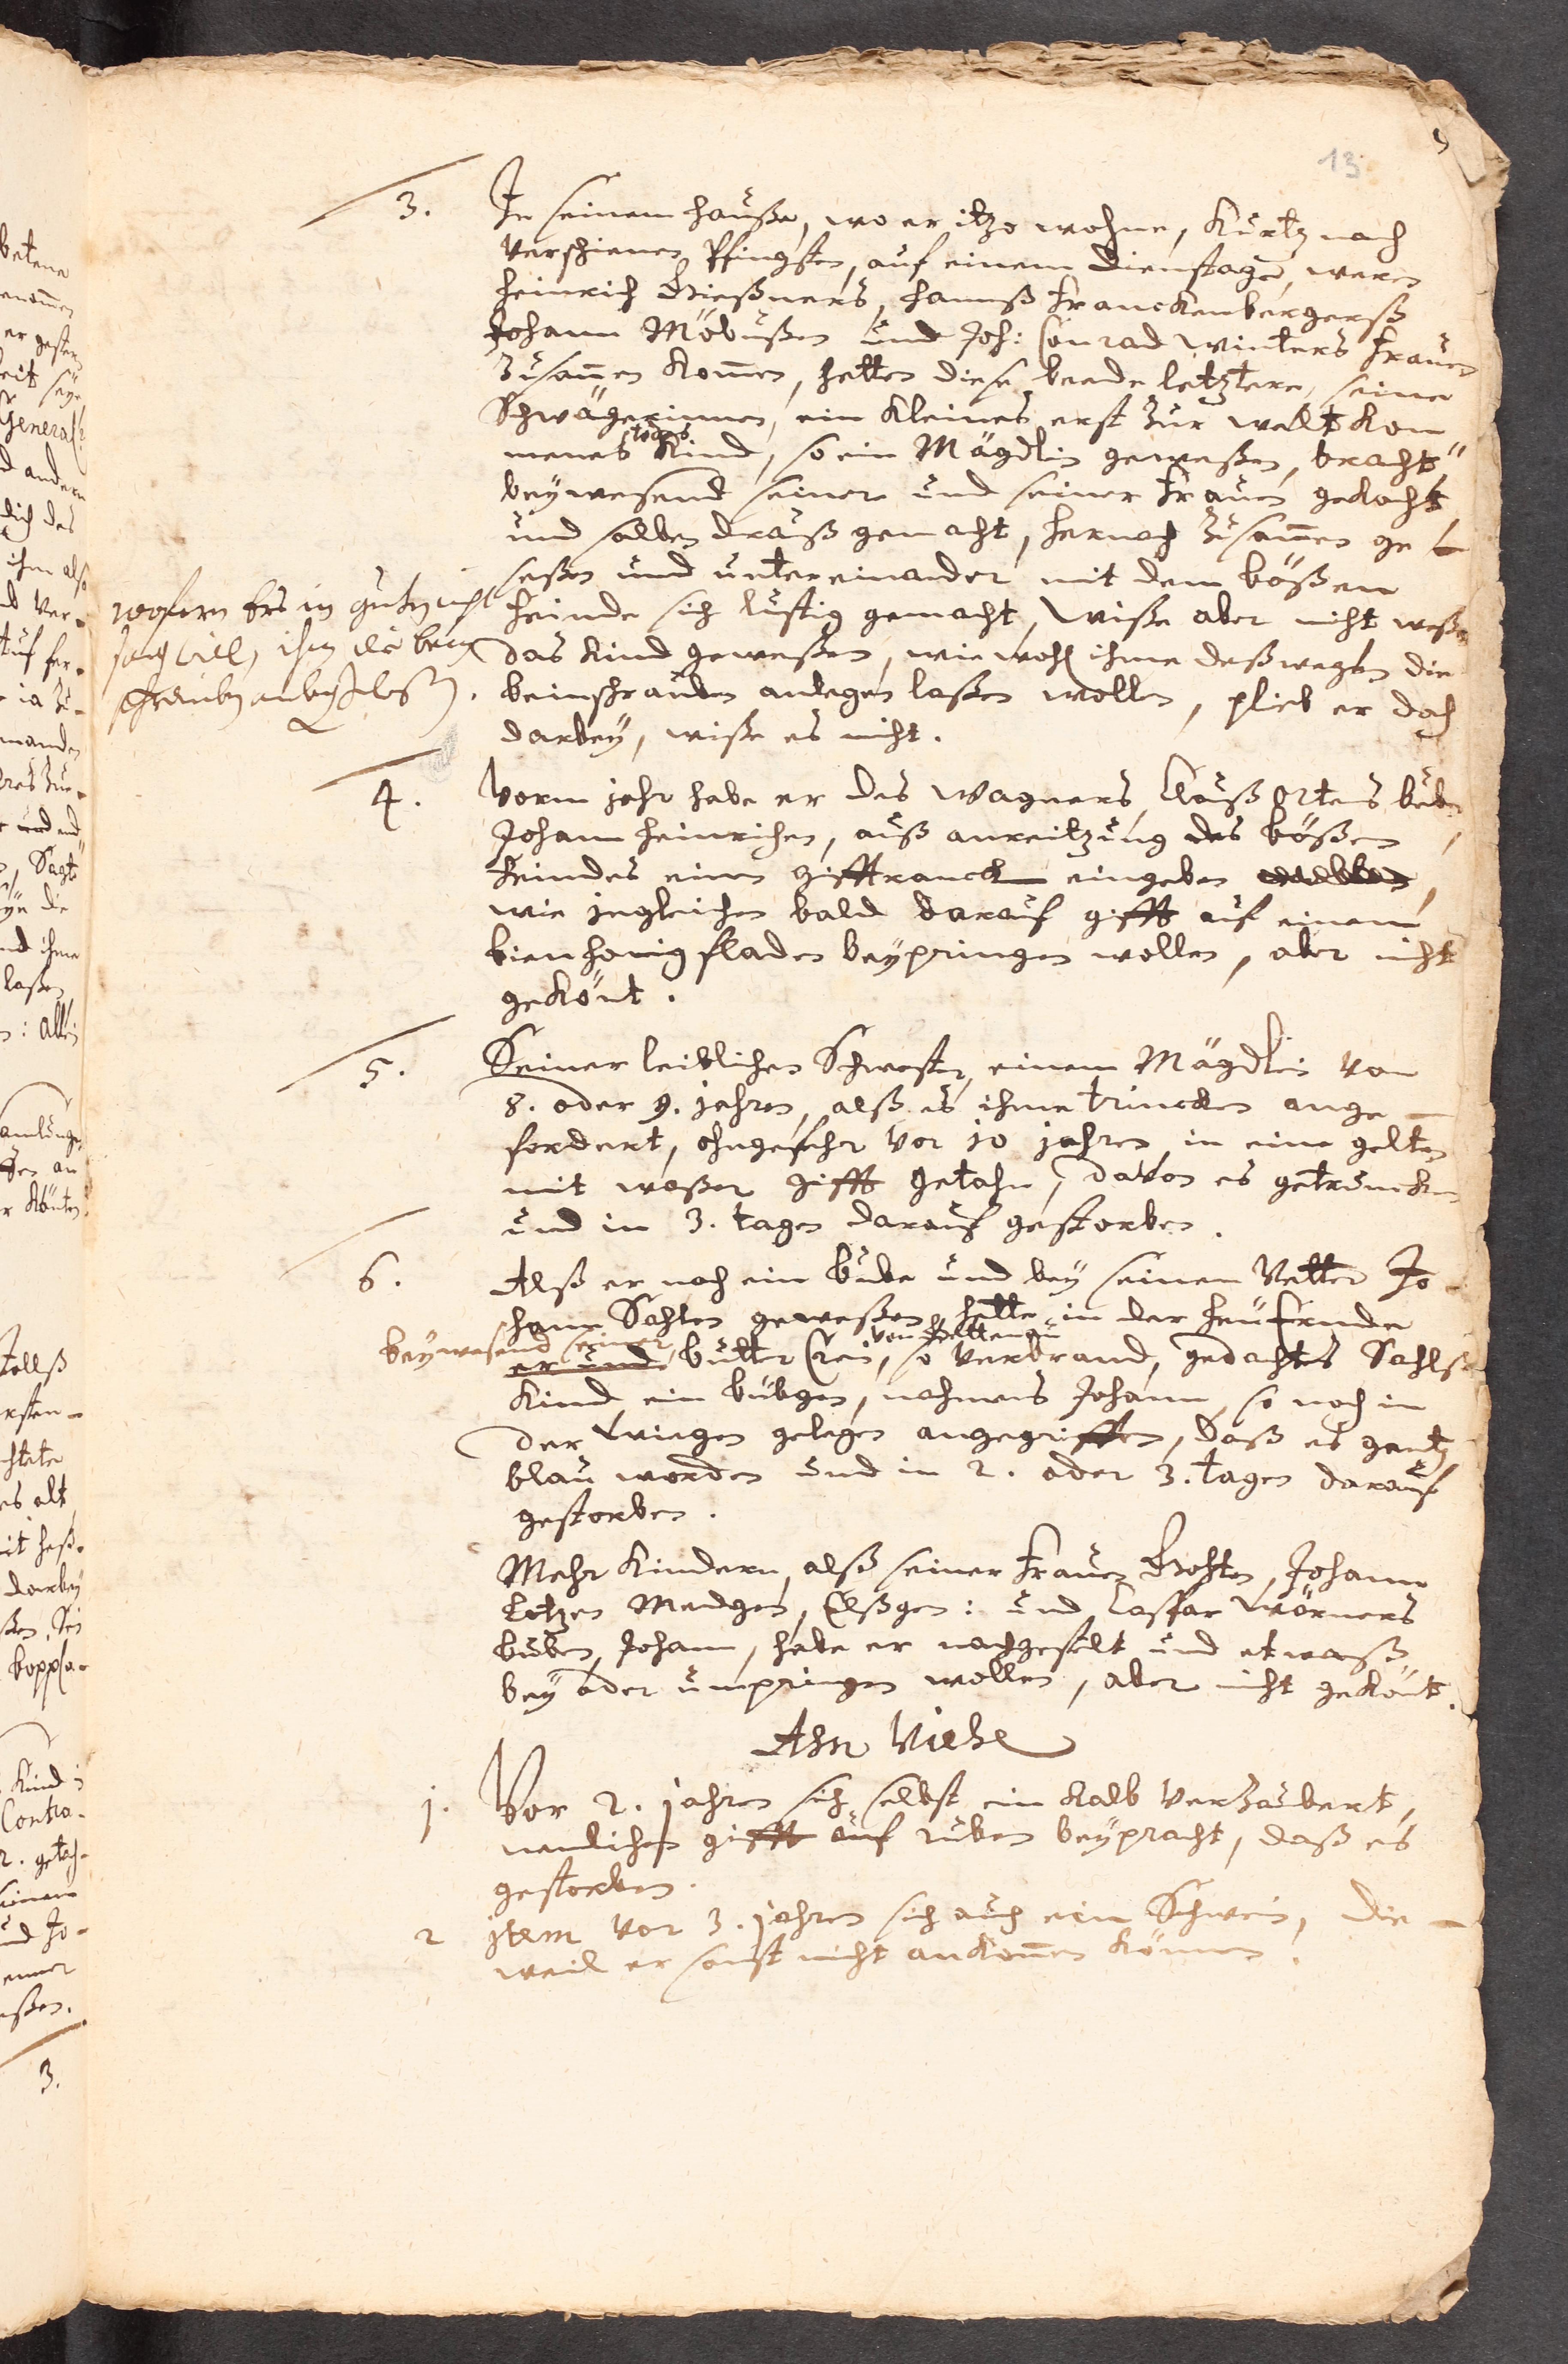 13
3. In seinem hauße, wo er itzo wohne, Kurtz nach
verschienen Pfingsten, auf einem Dienstage, weren
Heinrich Grießners, Hannß Franckenbergerß
Johann Möbußen und Joh: Conrad Winters Frauen
Zusam̃en Kom̃en, hetten diese beede letztere, seine
Schwägerinnen, ein Kleines erst Zur weltt Kom
menes todes Kind, so ein Mägdlin geweßen, bracht,
beywesend seiner und seiner Frauen gekocht
und salben drauß gemacht, hernach Zusam̃en ge
seßen und untereinander mit dem bößen
Feinde sich lustig gemacht, Wiße aber nicht weßen
das Kind geweßen, wie wohl ihme deßwegen die
beinschrauben anlegen laßen wollen, plieb er doch
darbey, wiße es nicht.
wofern Ers in guten nicht
sag will, ihm die bein
schrauben
4. Vorm jahr habe er des Wagners, Clauß Ortens buben
Johann Heinrichen, auß anreitzung des bößen
Feindes einen gifftranck eingeben
wie ingleichen bald darauf gifft auf einem
bien honig fladen beypringen wollen, aber nicht
geKönt.
5. Seiner leiblichen Schwester, einem Mägdlin von
8. oder 9. jahren, alß es ihme trincken ange
fordert, ohngefehr vor 10 jahren in eine gelten
mit waßer gifft getahn, davon es getruncken
und in 3. tagen darauf gestorben.
6. Alß er noch ein bube und bey seinem Vetter Jo-
hann Sahlen geweßen, hette in der heü Ernde
beywesend seiner er und butter Crein, von so verbrand, gedachtes Sahlß
Kind ein bubgen, nahmens Johann, so noch in
der Wiegen gelegen angegriffen, daß es gantz
blau worden und in 2. oder 3. tagen darauf
gestorben.
Mehr Kindern, alß seiner Frauen Gohten, Johann
Letzen Mendgen, Elßgen: und Caspar Wörners
buben, Johann, habe er nachgestelt und etwaß
bey oder umpringen wollen, aber nicht geKönt.
Ahn Viehe
1. Vor 2. jahren sich selbst ein Kalb verzaubert,
nemlichen gifft auf ruben beypracht, daß es
gestorben.
2 item vor 3. jahren sich auch ein Schwein, die-
weil er sonst nicht anKom̃en Können.